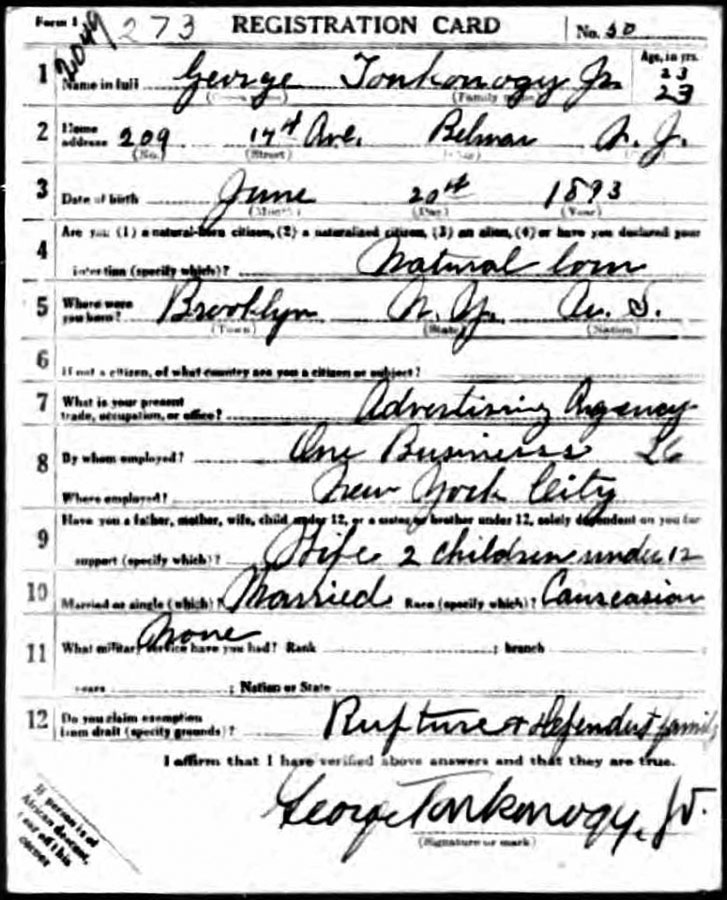 Form 1 2049 273 REGISTRATION CARD No. 50
1 Name in full George Tonkonogy Jr. Age, in yrs. 23 23
(Family
2 Home address 209 17th Ave. Belmar N. J.
(No.) (Street)
3 Date of birth June 20th 1893
(Month) (Day) (Year)
4 Are you (1) a natural-born citizen, (2) a naturalized citizen, (3) an alien, (4) or have you declared your
intention (specify which)? Natural born
5 Where were you born? Brooklyn N. Y. U. S.
(Town) (State) (Nation)
6 If not a citizen, of what country are you a citizen or subject?
7 What is your present trade, occupation, or office? Advertising Agency
8 By whom employed? Business
Where employed? New York City
9 Have you a father, mother, wife, child under 12, or a sister or brother under 12, solely dependent on you for
support (specify which)? Wife 2 children under 12
10 Married or single (which)? Married Race (specify which)? Causcasion
11 What military service have you had? Rank None ; branch
years ; Nation or State
12 Do you claim exemption from draft (specify grounds)? Rupture & Dependent family
I affirm that I have verified above answers and that they are true.
George Tonkonogy, Jr.
(Signature or mark)
If person is of
African descent,
off this
corner